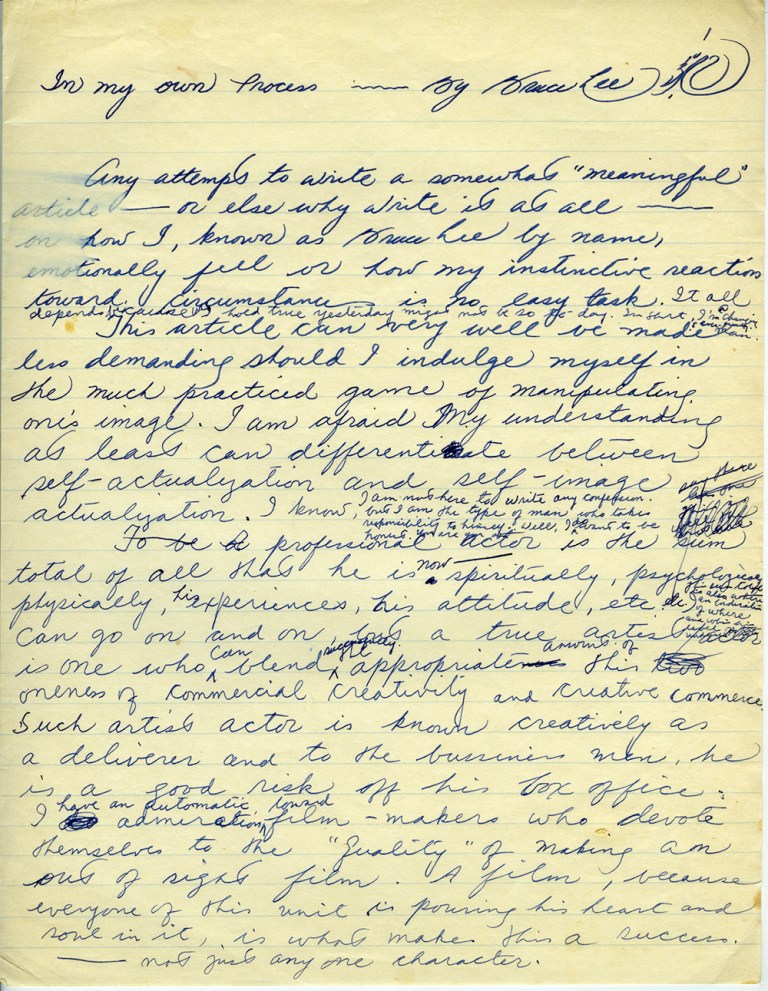 In my own Process —— By Bruce Lee
Any attempt to write a somewhat "meaningful"
article — or else why write it at all ——
on how I, known as Bruce Lee by name,
emotionally feel or how my instinctive reaction
toward circumstance is no easy task. It all
depends, because hold true yesterday might not be so to-day. In fact, I'm
This article can very well be made
less demanding should I indulge myself in
the much practiced game of manipulating
one's image. I am afraid My understanding
at least can differentiate between
self-actualization and self-image
actualization. I know
I am not here to write any confession.
but I am the type of man who takes
responsibility to himself. Well, I want to be
honest,
To be a professional actor is the sum
total of all that he is now — spiritually, psychologically
physically, his experiences, his attitude, etc etc.
Can go on and on, but a true artist
is one who can blend successfully right appropriate amount of this
oneness of commercial creativity and creative commerce.
Such artist actor is known creatively as
a deliverer and to the bussiness men, he
is a good risk off his box office.
I have an automatic admiration toward film-makers who devote
themselves to the "Quality" of making an
out of sight film. A film, because
everyone of this unit is pouring his heart and
soul in it, is what makes this a success.
—— not just any one character.